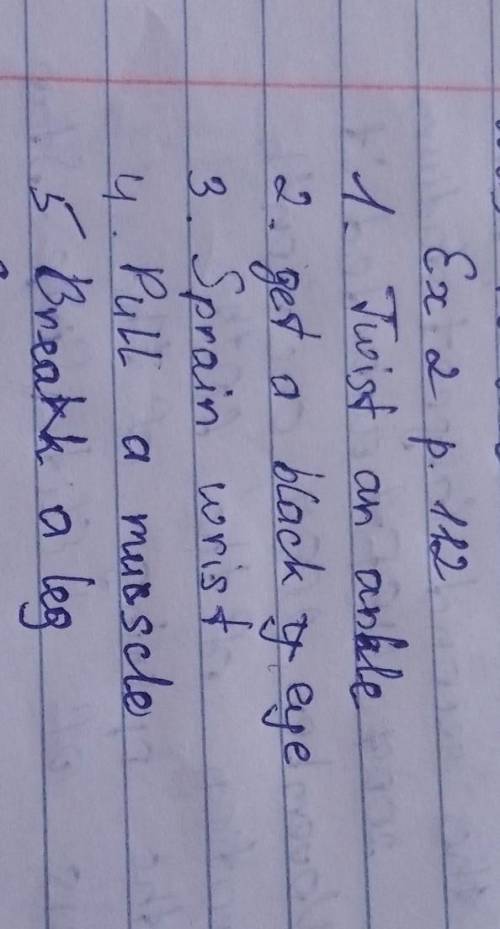 Ex 2 p. 112
1. Twist an ankle
2. get a black eye
3. Sprain wrist
4. Pull a muscle
5 Break a leg